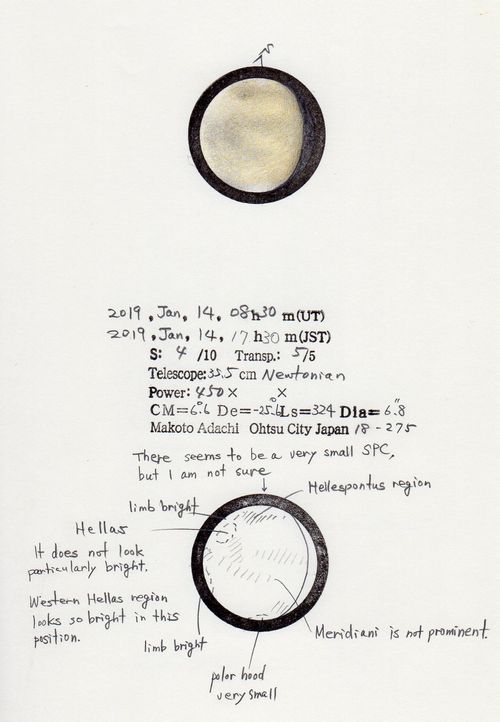 N
2019, Jan, 14, 08h30 m(UT)
2019, Jan, 14, 17h30 m(JST)
S: 4 /10 Transp.: 5/5
Telescope: 35.5 cm Newtonian
Power: 450× ×
CM=6.°6 De=-25.°6 Ls=324 Dia=6."8
Makoto Adachi Ohtsu City Japan 18-275
There seems to be a very small SPC,
but I am not sure
Hellespontus region
limb bright
Hellas
It does not look
particularly bright.
Western Hellas region
looks so bright in this
position.
limb bright
Meridiani is not prominent.
polor hood
very small